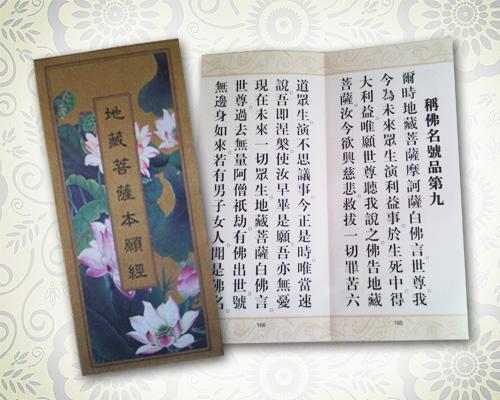 地藏菩薩本願經
稱佛名號品第九
爾時地藏菩薩摩訶薩白佛言。世尊。我
今為未來眾生演利益事。於生死中。得
大利益。唯願世尊聽我說之。佛告地藏
菩薩。汝今欲興慈悲。救拔一切罪苦六
道眾生。演不思議事。今正是時。唯當速
說。吾即涅槃。使汝早畢是願。吾亦無憂
現在未來一切眾生。地藏菩薩白佛言。
世尊。過去無量阿僧祇劫。有佛出世。號
無邊身如來。若有男子女人。聞是佛名。
165
166